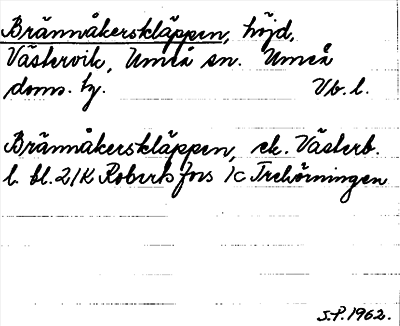 Brännåkerskläppen, höjd,
Västervik, Umeå sn. Umeå
doms. tg. Vb. l.
Brännåkerskläppen, ek. Västerb.
l. bl. 21K Robertsfors 1c Trehörningen
S.P. 1962.